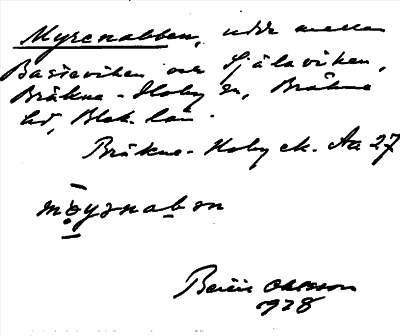 Myrenabben, udde mellan
Basieviken och Själaviken,
Bräkne-Hoby sn, Bräkne
hd, Blek. län.
Bräkne-Hoby ek. Aa 27
möyrnabən
Ohlsson
1928